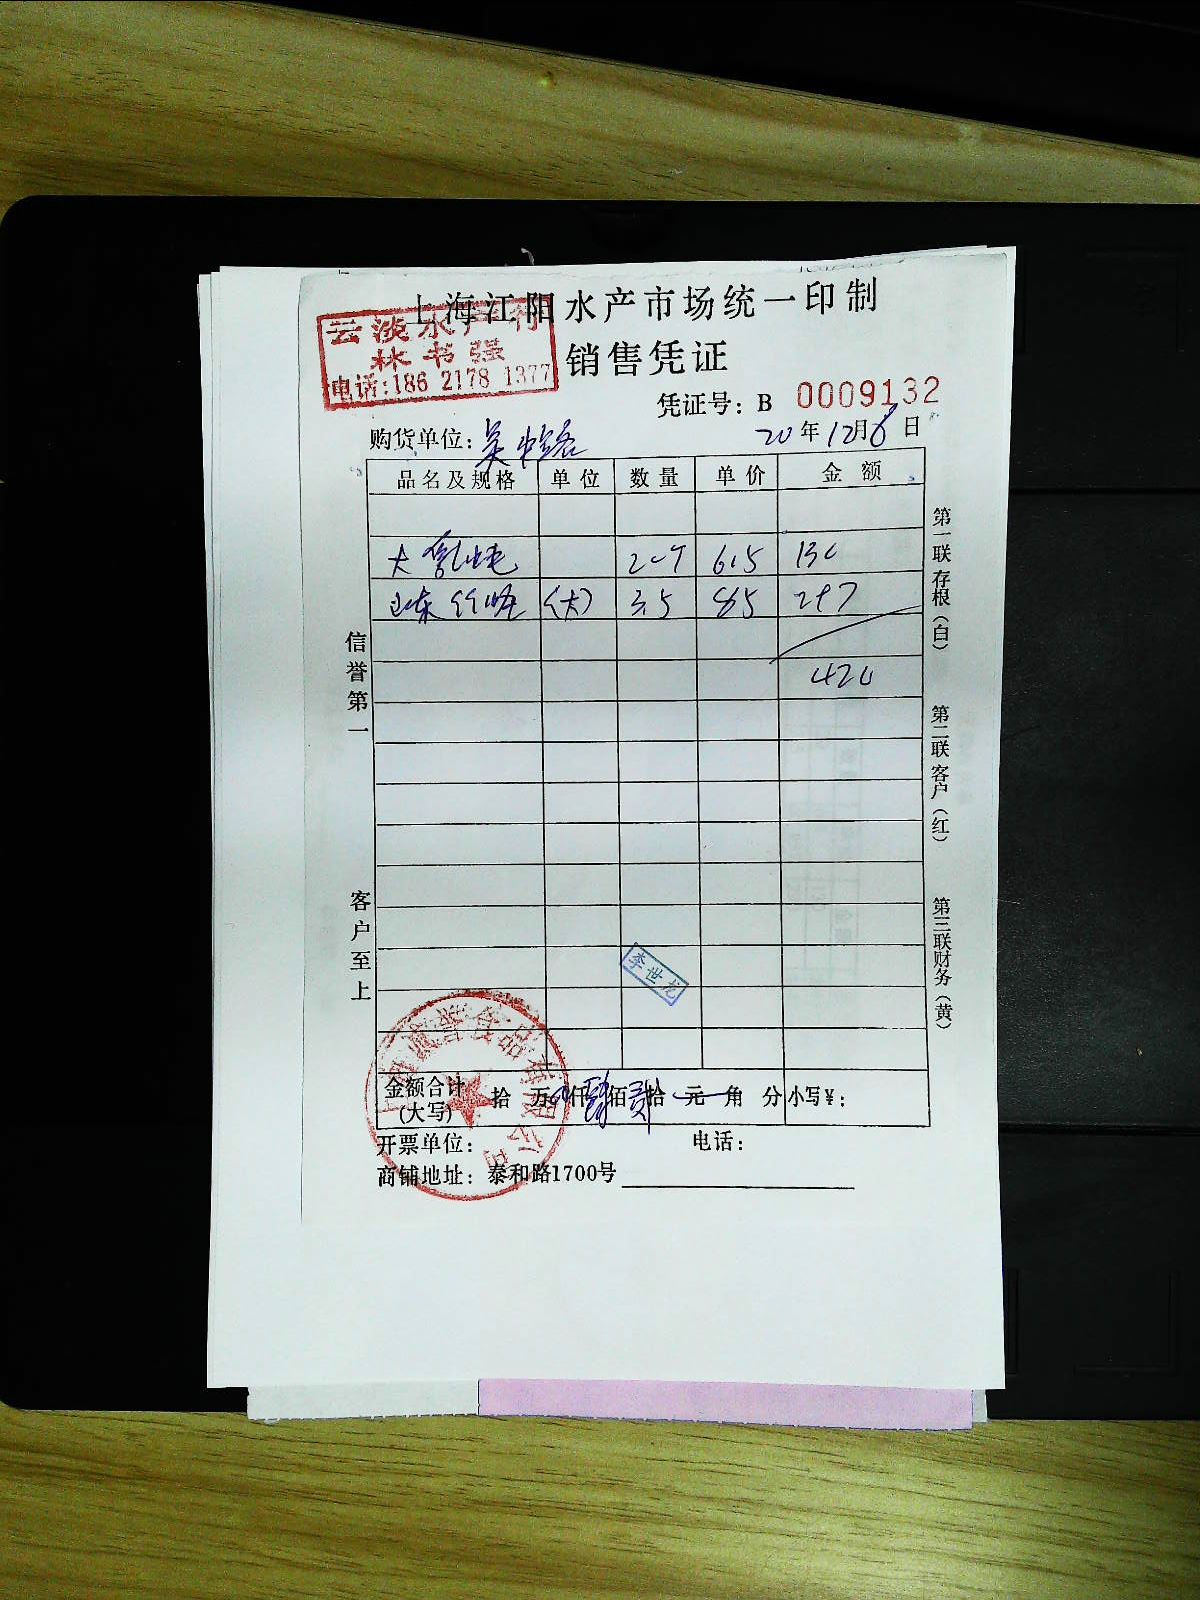 上海江阳水产市场统一印制
云淡水产行
林书强
电话:186 2178 1377
销售凭证
凭证号: B 0009132
购货单位: 吴
20年12月6日
品名及规格 单位 数量 单价 金额
大 615 130
山东 (大) 3.5 85 297
420
信誉第一
客户至上
第一联存根(白)
第二联客户(红)
第三联财务(黄)
李世龙
诚誉食品有限公司
金额合计(大写) 拾 万 仟 肆 佰 贰 拾 元 角 分 小写¥:
开票单位: 电话:
商铺地址: 泰和路1700号